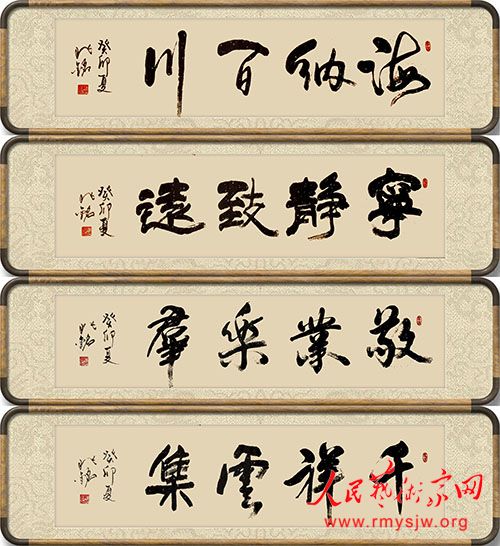 海納百川
癸卯夏
寧靜致遠
癸卯夏
敬業樂群
癸卯夏
千祥雲集
癸卯夏
人民艺术家网
www.rmysjw.org